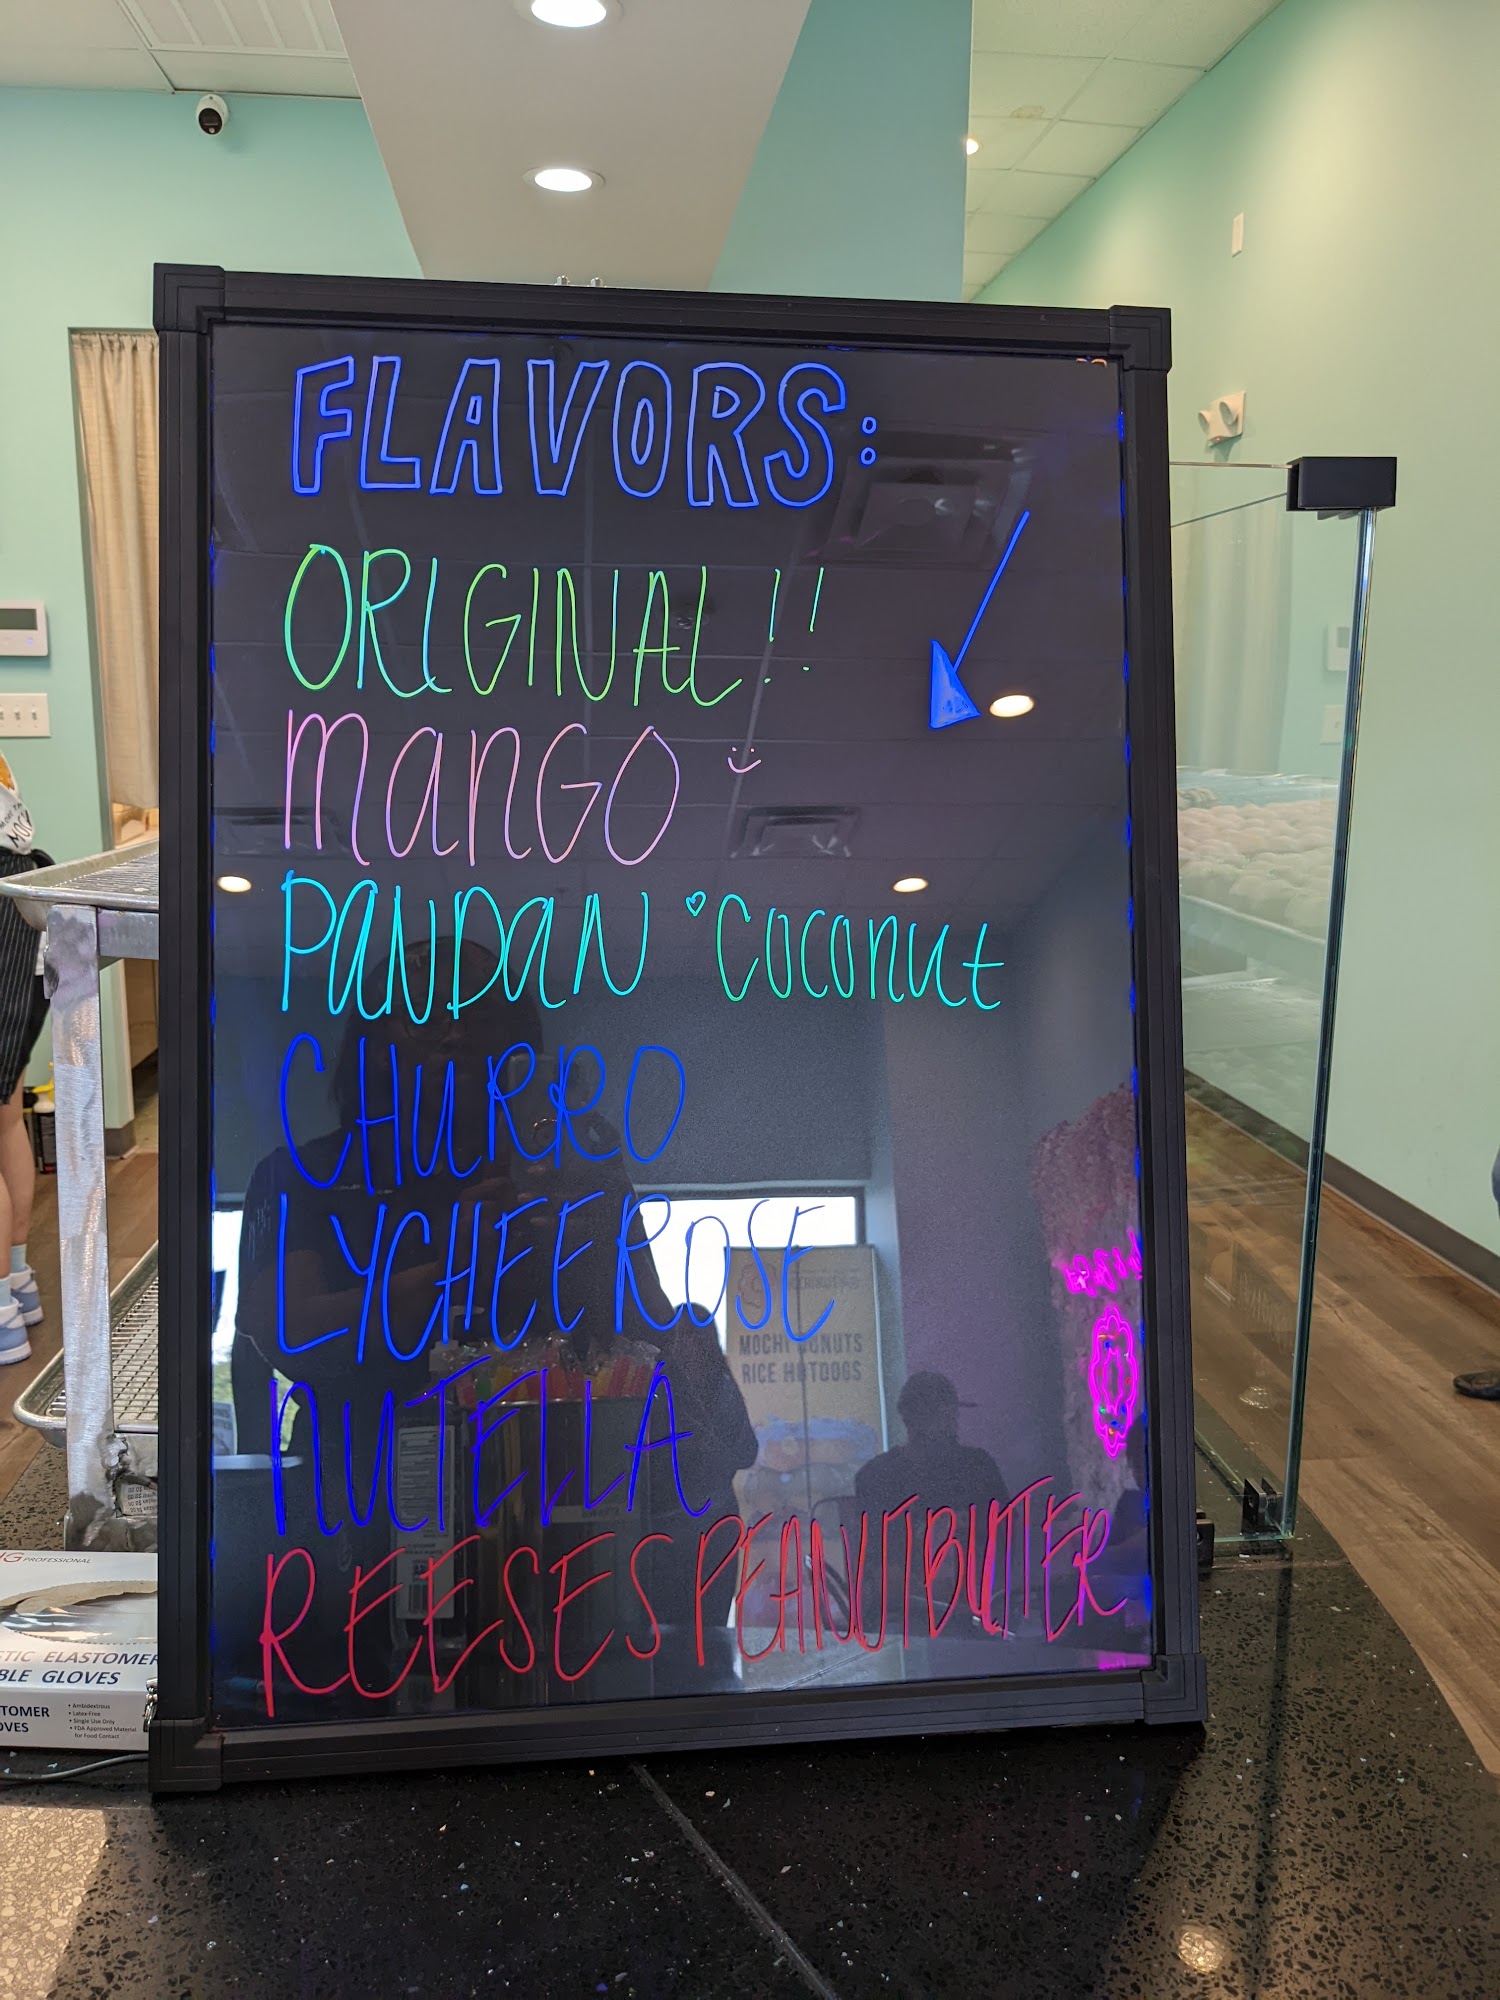 FLAVORS:
ORIGINAL!!
MANGO
PANDAN COCONUT
CHURRO
LYCHEE ROSE
NUTELLA
REESES PEANUT BUTTER
MOCHI DONUTS
RICE HOTDOGS
PROFESSIONAL
ELASTOMER
GLOVES
• Ambidextrous
• Latex-Free
• Single Use Only
• FDA Approved Material
for Food Contact